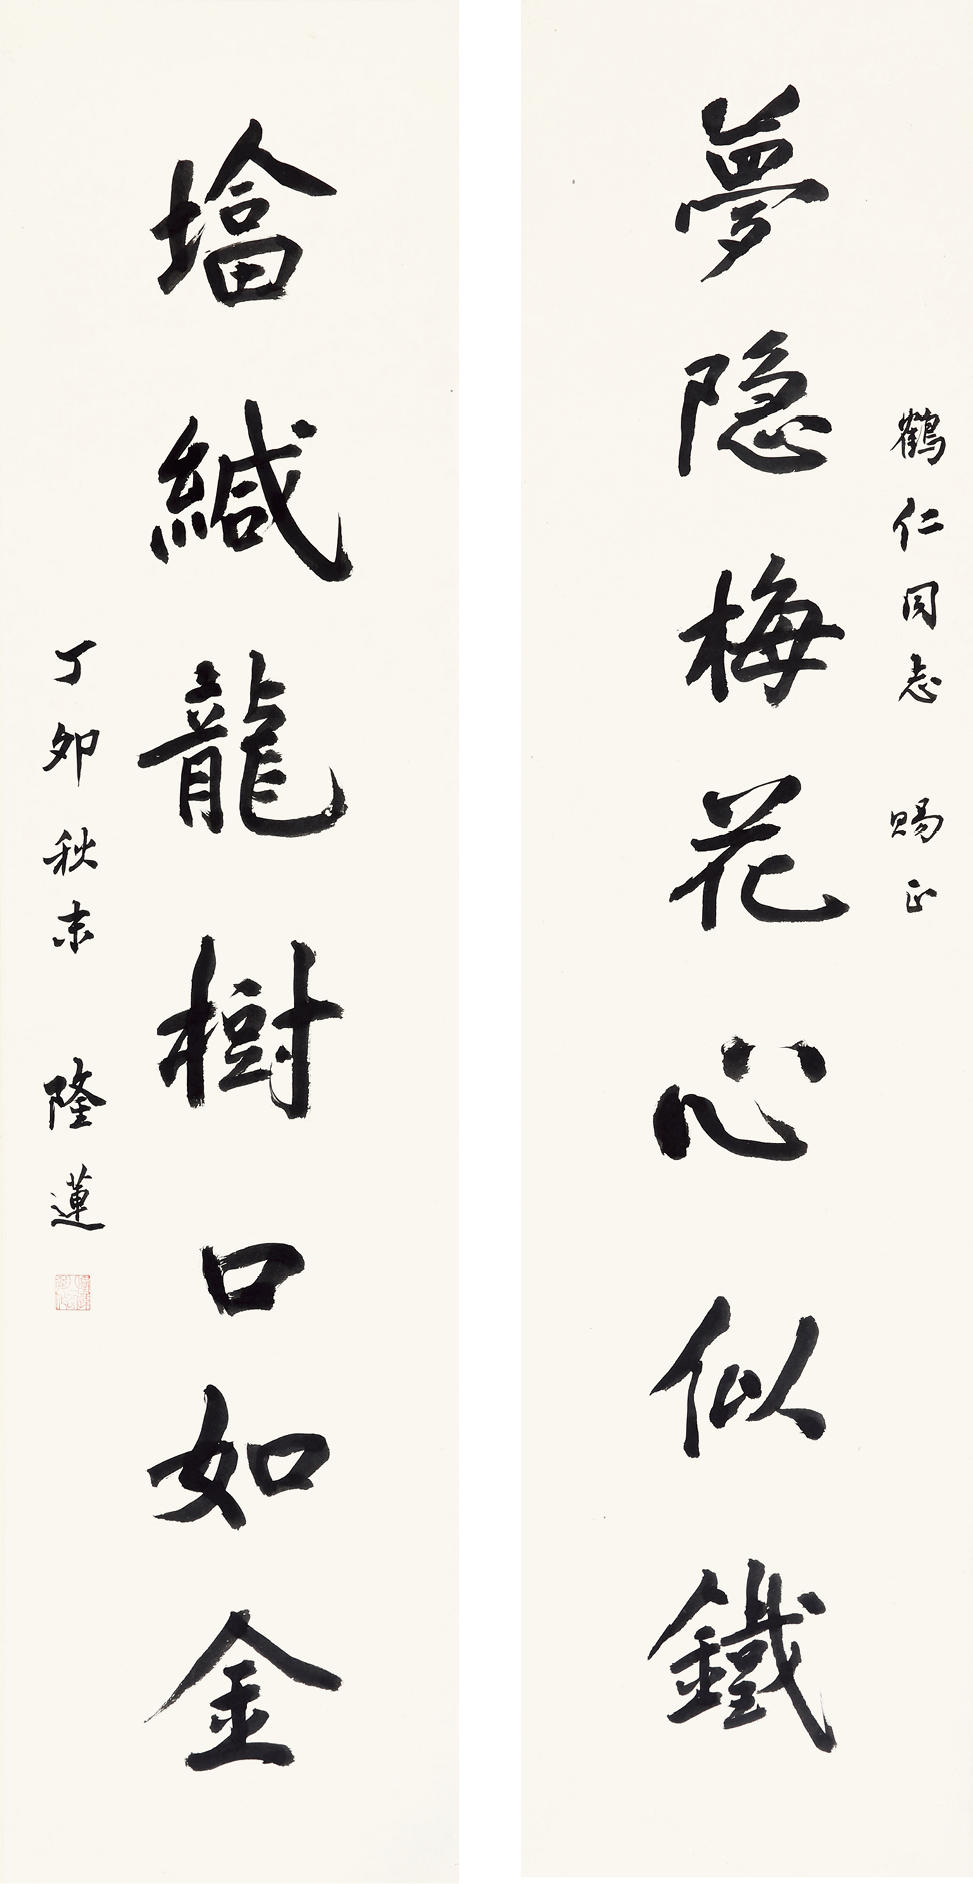 鶴仁同志 賜正
夢隐梅花心似鐵
墖緘龍樹口如金
丁卯秋末 隆蓮